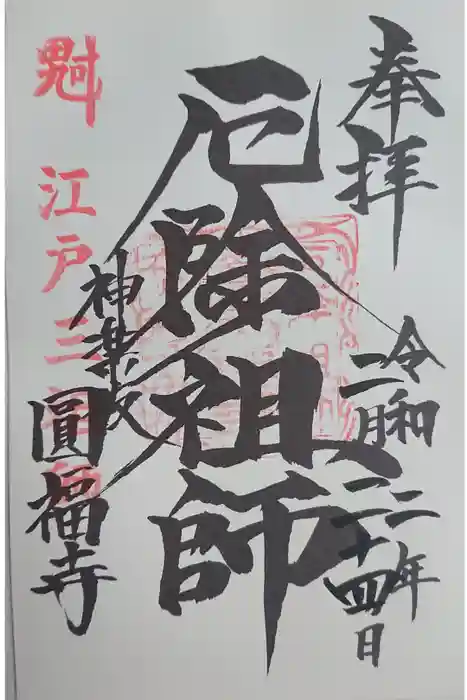 奉拝
令和二年
二月二十四日
厄除祖師
神楽坂
圓福寺
魁 江戸三